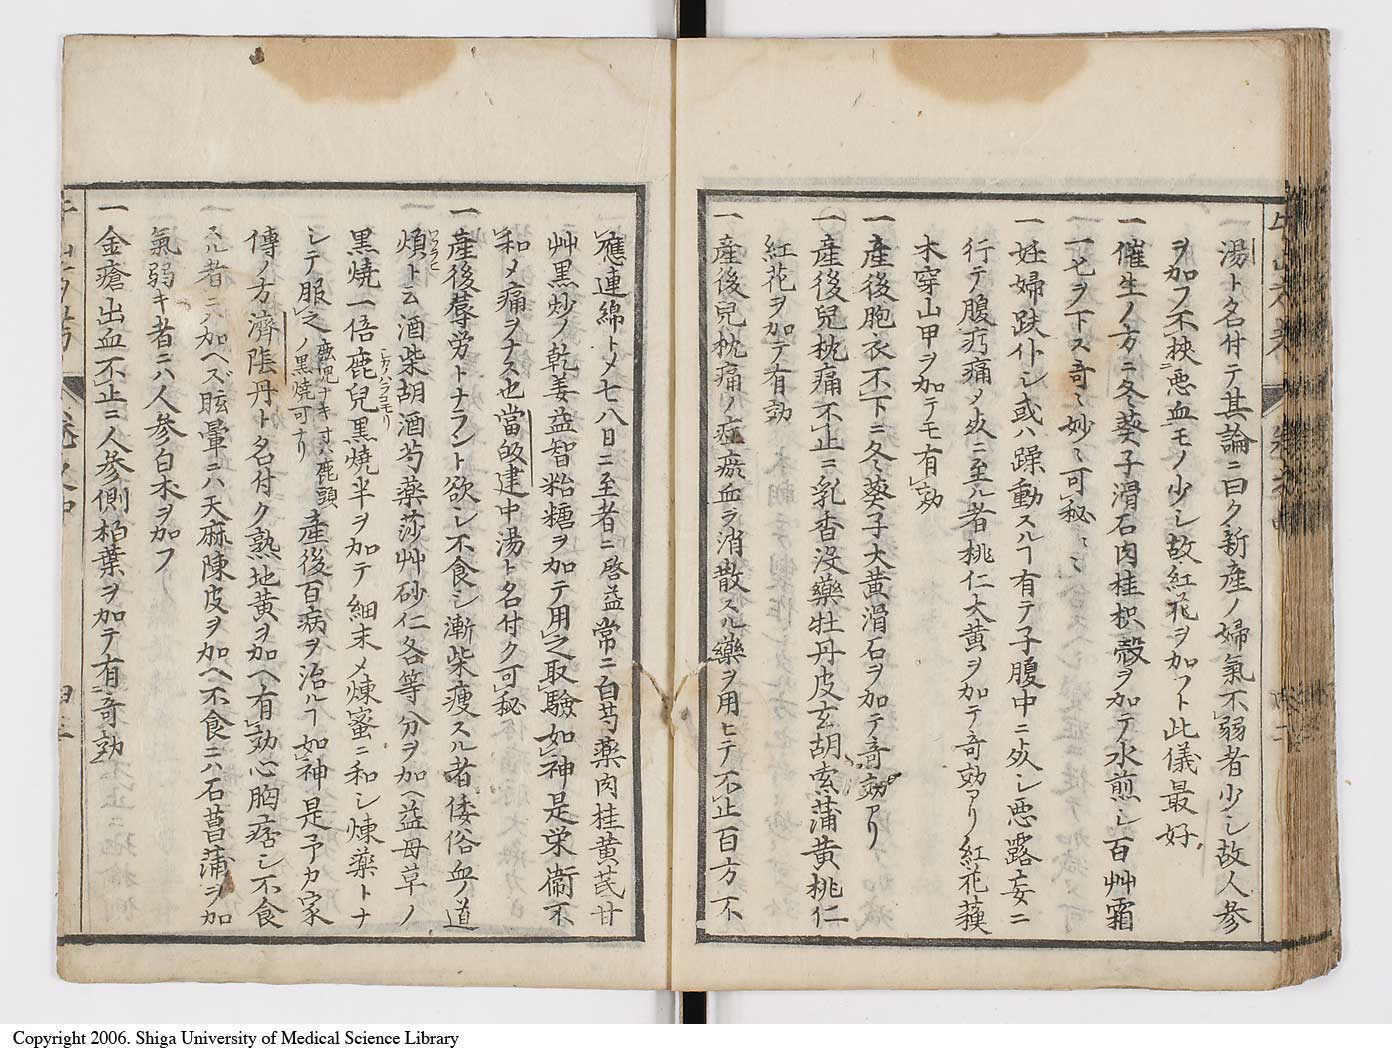 一湯ト名付テ其論ニ曰ク新産ノ婦氣不弱者少シ故人参
ヲ加フ不挾悪血モノ少シ故紅花ヲ加フト此儀最好
一催生ノ方ニ冬葵子滑石肉桂枳殻ヲ加テ水煎シ百艸霜
一七ヲ下ス奇ミ妙ミ可秘ミミ
一妊婦跌仆シ或ハ躁動スルヿ有テ子腹中ニ死シ悪露妄ニ
行テ腹㽲痛メ死ニ至ル者桃仁大黄ヲ加テ奇効アリ紅花蘓
木穿山甲ヲ加テモ有効
一産後胞衣不下ニ冬葵子大黄滑石ヲ加テ竒効アリ
一産後兒枕痛不止ニ乳香没藥牡丹皮玄胡索蒲黄桃仁
紅花ヲ加テ有効
一産後兒枕痛ノ症瘀血ヲ消散スル藥ヲ用ヒテ不止百方不
應連綿トメ七八日ニ至者ニ啓益常ニ白芍藥肉桂黄芪甘
艸黒炒ノ乾姜益智粭糖ヲ加テ用之取驗如神是栄衞不
和メ痛ヲナス也當皈建中湯ト名付ク可秘
一産後蓐労トナラント欲シ不食シ漸柴痩スル者倭俗血ノ道
煩ト云酒柴胡酒芍藥莎艸砂仁各等分ヲ加ヘ益母草ノ
ワツラヒ
黒焼一倍鹿兒黒焼半ヲ加テ細末メ煉蜜ニ和シ煉藥トナ
シカノハラコモリ
シテ服之鹿兒ナキ寸ハ鹿頭ノ黒焼可ナリ産後百病ヲ治ルヿ如神是予カ家
傳ノ方濟陰丹ト名付ク熟地黄ヲ加ヘ有効心胸痞シ不食
スル者ニハ加ヘズ眩暈ニハ天麻陳皮ヲ加ヘ不食ニハ石菖蒲ヲ加
氣弱キ者ニハ人参白朮ヲ加フ
一金瘡出血不止ニ人参側栢葉ヲ加テ有竒効
Copyright 2006. Shiga University of Medical Science Library